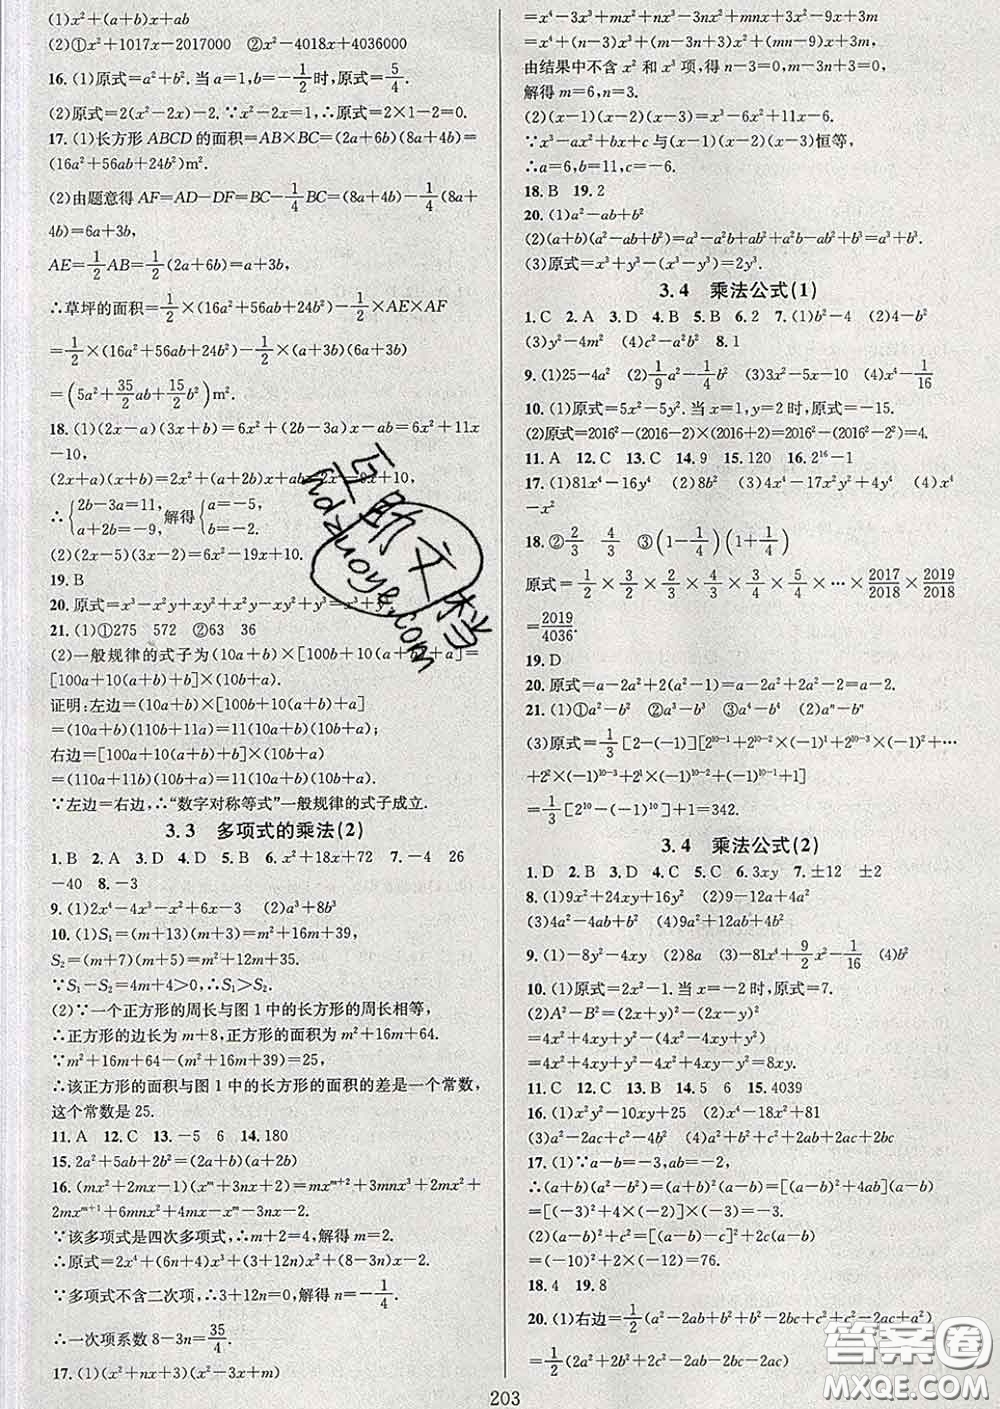 (1)x²+(a+b)x+ab
(2)①x²+1017x-2017000 ②x²-4018x+4036000
16. (1)原式=a²+b². 当a=1,b=-1/2时,原式=5/4.
(2)原式=2(x²-2x)-2. ∵x²-2x=1,∴原式=2×1-2=0.
17. (1)长方形ABCD的面积=AB×BC=(2a+6b)(8a+4b)=
(16a²+56ab+24b²)m².
(2)由题意得AF=AD-DF=BC-1/4BC=(8a+4b)-1/4(8a+
4b)=6a+3b,
AE=1/2AB=1/2(2a+6b)=a+3b,
∴草坪的面积=1/2×(16a²+56ab+24b²)-1/2×AE×AF
=1/2×(16a²+56ab+24b²)-1/2×(a+3b)(6a+3b)
=(5a²+35/2ab+15/2b²)m².
18. (1)(2x-a)(3x+b)=6x²+(2b-3a)x-ab=6x²+11x
-10,
(2x+a)(x+b)=2x²+(a+2b)x+ab=2x²-9x+10,
∴{2b-3a=11, a+2b=-9, 解得{a=-5, b=-2.
(2)(2x-5)(3x-2)=6x²-19x+10.
19. B
20. 原式=x³-x²y+xy²+x²y-xy²+y³=x³+y³
21. (1)①275 572 ②63 36
(2)一般规律的式子为(10a+b)×[100b+10(a+b)+a]=
[100a+10(a+b)+b]×(10b+a).
证明:左边=(10a+b)×[100b+10(a+b)+a]
=(10a+b)(110b+11a)=11(10a+b)(10b+a);
右边=[100a+10(a+b)+b]×(10b+a)
=(110a+11b)(10b+a)=11(10a+b)(10b+a),
∵左边=右边,∴“数字对称等式”一般规律的式子成立.
3.3 多项式的乘法(2)
1. B 2. A 3. D 4. D 5. B 6. x²+18x+72 7. -4 26
-40 8. -3
9. (1)2x⁴-4x³-x²+6x-3 (2)a³+8b³
10. (1)S₁=(m+13)(m+3)=m²+16m+39,
S₂=(m+7)(m+5)=m²+12m+35.
∵S₁-S₂=4m+4>0,∴S₁>S₂.
(2)∵一个正方形的周长与图1中的长方形的周长相等,
∴正方形的边长为m+8,正方形的面积为m²+16m+64.
∵m²+16m+64-(m²+16m+39)=25,
∴该正方形的面积与图1中的长方形的面积的差是一个常数,
这个常数是25.
11. A 12. C 13. -5 6 14. 180
15. 2a²+5ab+2b²=(2a+b)(a+2b)
16. (mx²+2mx-1)(xᵐ+3nx+2)=mxᵐ⁺²+3mnx³+2mx²+
2mxᵐ⁺¹+6mnx²+4mx-xᵐ-3nx-2.
∵该多项式是四次多项式,∴m+2=4,解得m=2.
∴原式=2x⁴+(6n+4)x³+(3+12n)x²+(8-3n)x-2.
∵多项式不含二次项,∴3+12n=0,解得n=-1/4.
∴一次项系数8-3n=35/4.
17. (1)(x²+nx+3)(x²-3x+m)
=x⁴-3x³+mx²+nx³-3nx²+mnx+3x²-9x+3m
=x⁴+(n-3)x³+(m-3n+3)x²+(mn-9)x+3m,
由结果中不含x²和x³项,得n-3=0,m-3n+3=0,
解得m=6,n=3.
(2)(x-1)(x-2)(x-3)=x³-6x²+11x-6.
∵x³-ax²+bx+c与(x-1)(x-2)(x-3)恒等,
∴a=6,b=11,c=-6.
18. B 19. 2
20. (1)a²-ab+b²
(2)(a+b)(a²-ab+b²)=a³-a²b+ab²+a²b-ab²+b³=a³+b³.
(3)原式=x³+y³-(x³-y³)=2y³.
3.4 乘法公式(1)
1. C 2. A 3. D 4. B 5. B 6. 2 7. (1)b²-4 (2)4-b²
(3)y²-4m² (4)c²-a²b² 8. 1
9. (1)25-4a² (2)1/9a²-1/4b² (3)3x²-5x-10 (4)x⁴-1/16
10. (1)原式=5x²-5y². 当x=1,y=2时,原式=-15.
(2)原式=2016²-(2016-2)×(2016+2)=2016²-(2016²-2²)=4.
11. A 12. C 13. C 14. 9 15. 120 16. 2¹⁶-1
17. (1)81x⁴-16y⁴ (2)8b² (3)4x⁴-17x²y²+4y⁴ (4)x⁴
-x²
18. ①2/3 4/3 ③(1-1/4)(1+1/4)
原式=1/2×3/2×2/3×4/3×3/4×5/4×…×2017/2018×2019/2018
=2019/4036.
19. D
20. 原式=a-2a²+2(a²-1)=a-2a²+2a²-2=a-2.
21. (1)①a²-b² ②a³-b³ ③a⁴-b⁴ (2)aⁿ-bⁿ
(3)原式=1/3[2-(-1)][2¹⁰⁻¹+2¹⁰⁻²×(-1)¹+2¹⁰⁻³×(-1)²+…
+2²×(-1)¹⁰⁻³+2¹×(-1)¹⁰⁻²+(-1)¹⁰⁻¹+1]
=1/3[2¹⁰-(-1)¹⁰]+1=342.
3.4 乘法公式(2)
1. D 2. D 3. D 4. C 5. C 6. 3xy 7. ±12 ±2
8. (1)9x²+24xy+16y² (2)9-12a+4a²
(3)4a²-4ab+b² (4)9a²+12ab+4b²
9. (1)-8y²-4xy (2)8a (3)-81x⁴+9/2x²-1/16 (4)b²
10. (1)原式=2x²-1. 当x=-2时,原式=7.
(2)A²-B²=(2x+y)²-(2x-y)²
=4x²+4xy+y²-(4x²-4xy+y²)
=4x²+4xy+y²-4x²+4xy-y²=8xy.
11. C 12. C 13. B 14. 5 6 15. 4039
16. (1)x²y²-10xy+25 (2)x⁴-18x²+81
(3)a²-2ac+c²-4b² (4)a²+b²+c²+2ab+2ac+2bc
17. (1)∵a-b=-3,ab=-2,
∴(a+b)(a²-b²)=(a+b)²(a-b)=[(a-b)²+4ab](a-b)
=[(-3)²+4×(-2)]×(-3)=-3.
(2)(2-a)²+(c-2)²=[(2-a)+(c-2)]²-2(2-a)(c-2)
=(-10)²+2×(-12)=76.
18. 4 19. 8
20. (1)右边=1/2(a²-2ab+b²+b²-2bc+c²+c²-2ac+a²)
=1/2(2a²+2b²+2c²-2ab-2bc-2ac)
203
互助文档
hdzuoye.com
答案圈
MXQE.COM